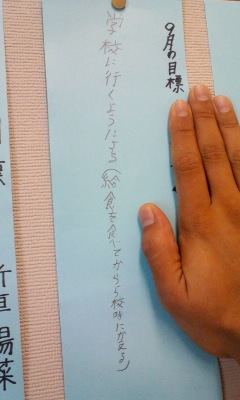 9月の目標
学校に行くようにする(給食を食べてからら校時に帰る)
陽菜